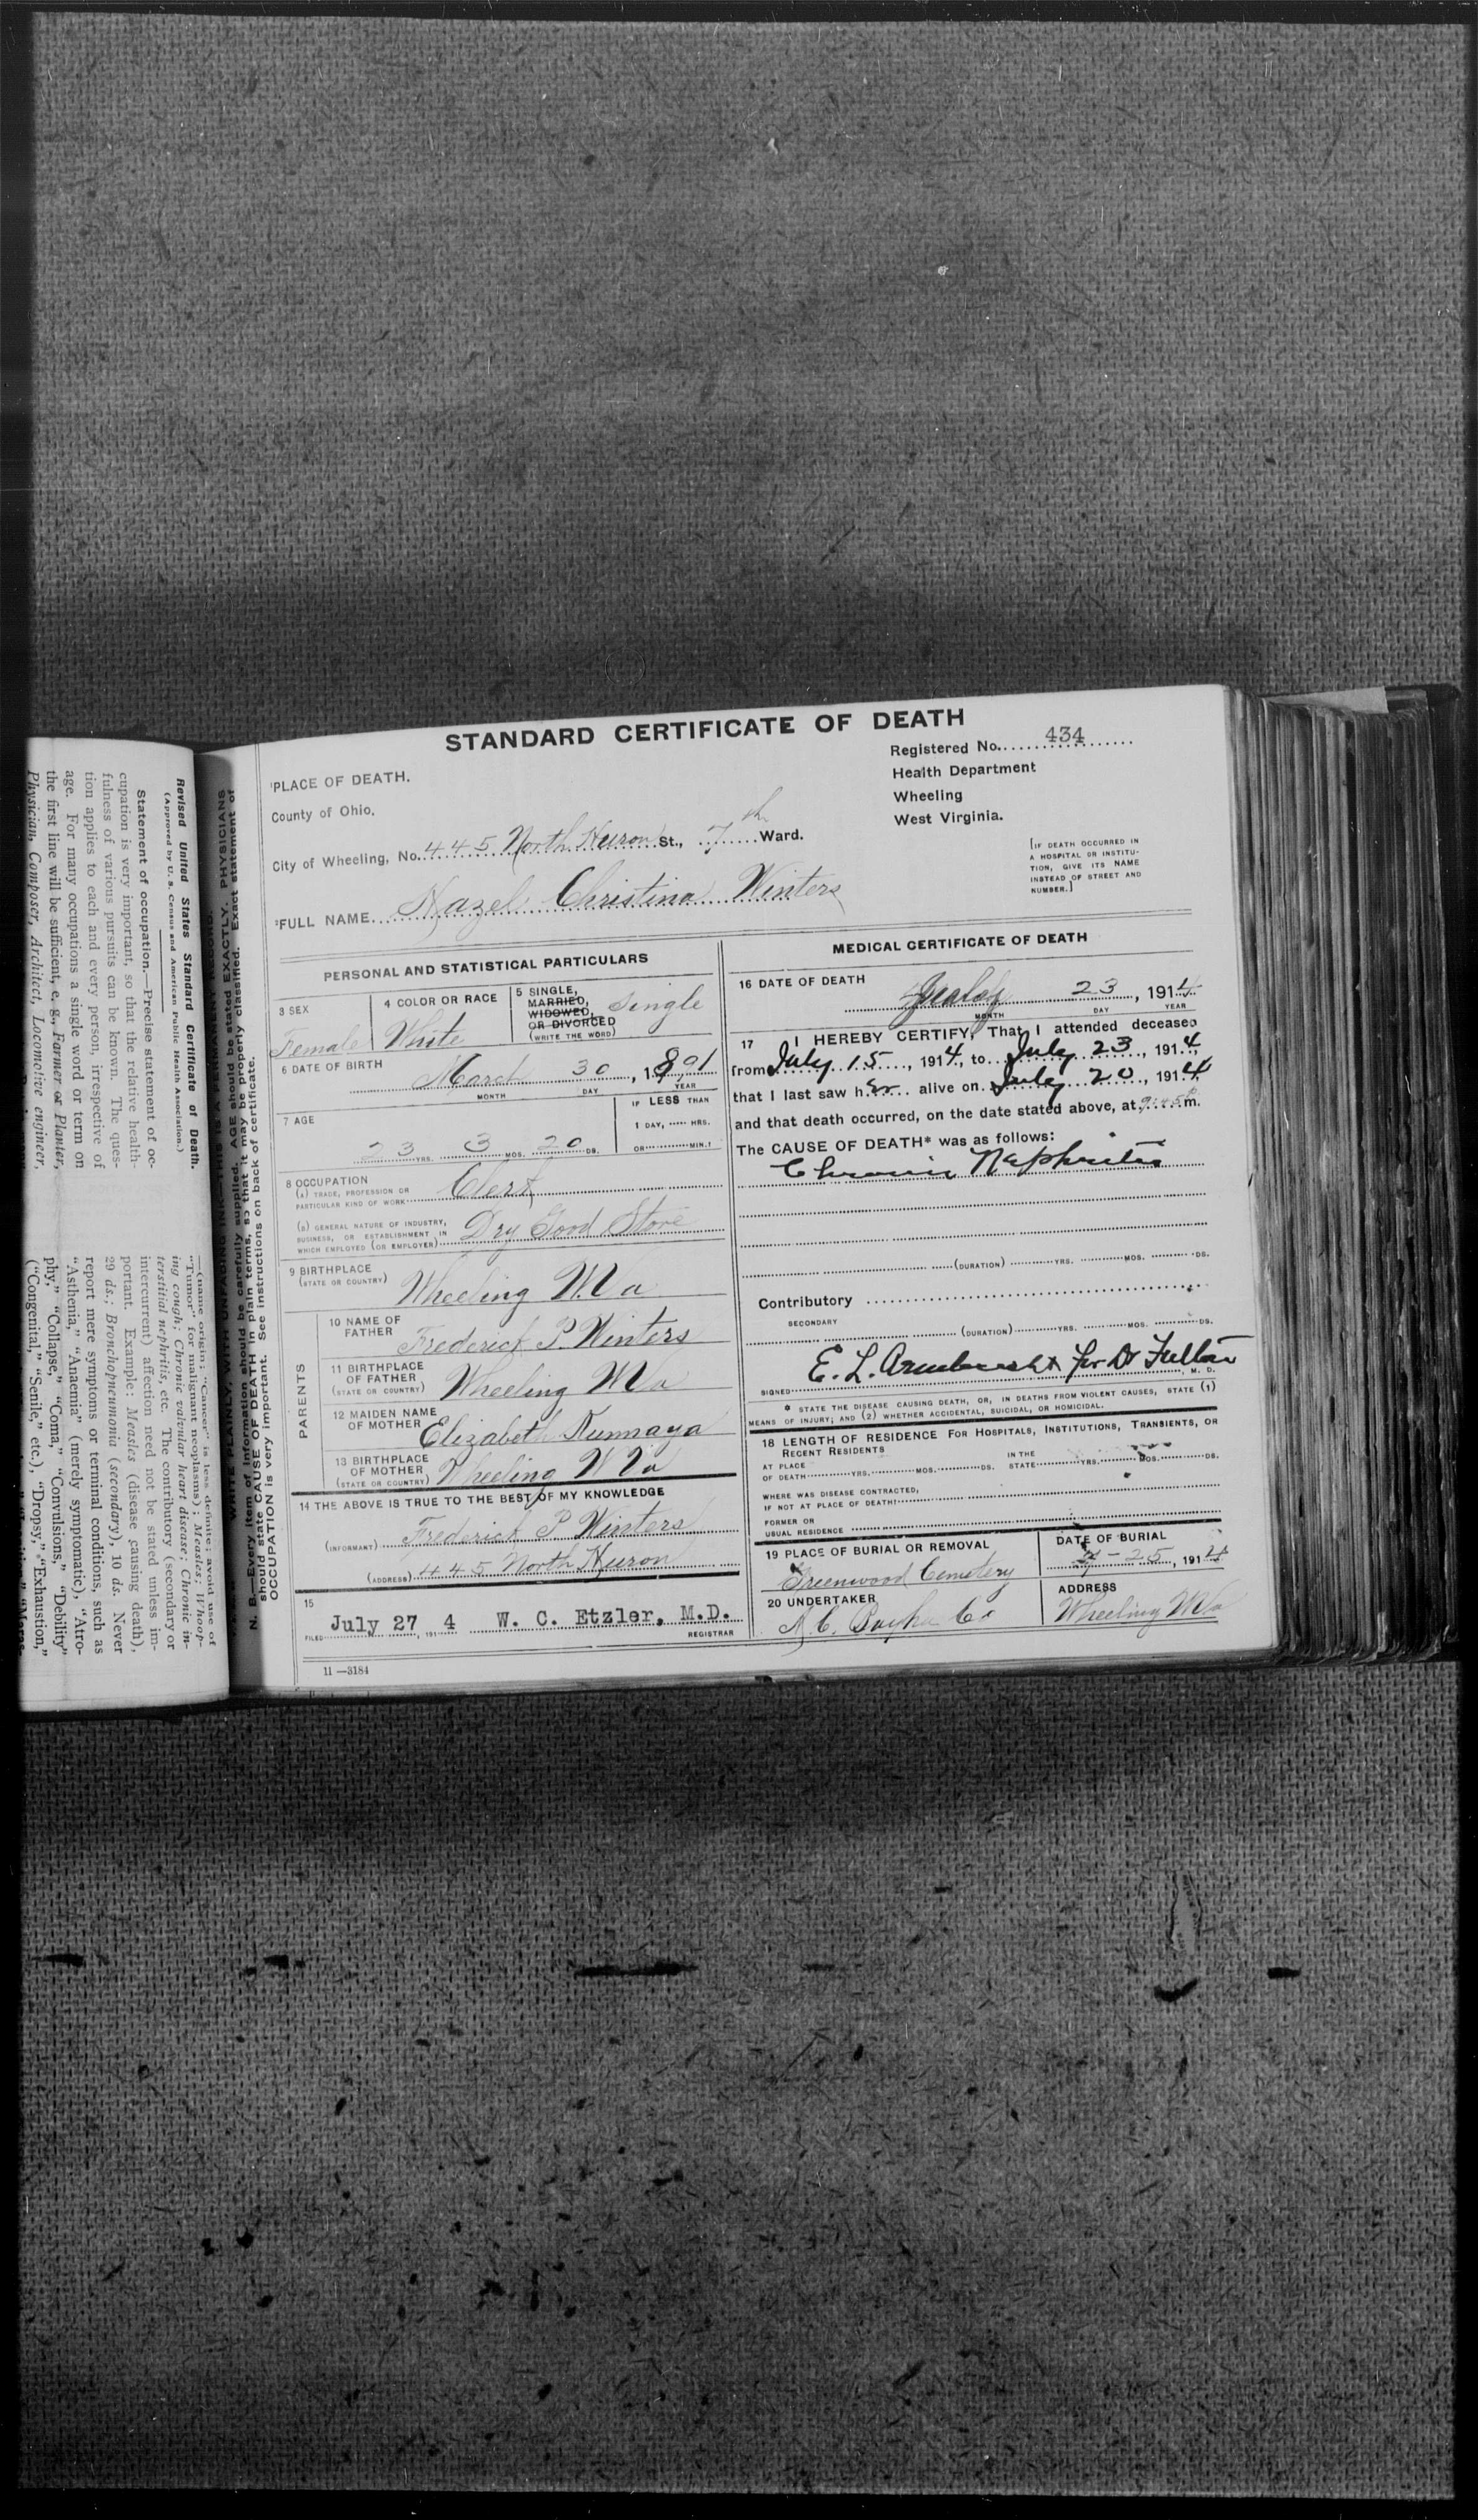 STANDARD CERTIFICATE OF DEATH
Registered No. 434
Health Department
Wheeling
West Virginia.
PLACE OF DEATH.
County of Ohio,
City of Wheeling, No. 445 North Huron St., 7th Ward.
[IF DEATH OCCURRED IN
A HOSPITAL OR INSTITU-
TION, GIVE ITS NAME
INSTEAD OF STREET AND
NUMBER.]
FULL NAME Hazel Christina Winters
PERSONAL AND STATISTICAL PARTICULARS
3 SEX
Female
4 COLOR OR RACE
White
5 SINGLE,
MARRIED,
WIDOWED,
OR DIVORCED
(WRITE THE WORD)
Single
6 DATE OF BIRTH
March 30, 1891
MONTH DAY YEAR
7 AGE
23 YRS. 3 MOS. 20 DS.
IF LESS THAN
1 DAY, HRS.
OR MIN.?
8 OCCUPATION
(A) TRADE, PROFESSION OR
PARTICULAR KIND OF WORK Clerk
(B) GENERAL NATURE OF INDUSTRY,
BUSINESS, OR ESTABLISHMENT IN
WHICH EMPLOYED (OR EMPLOYER) Dry Good Store
9 BIRTHPLACE
(STATE OR COUNTRY) Wheeling W.Va
PARENTS
10 NAME OF
FATHER Frederick P. Winters
11 BIRTHPLACE
OF FATHER
(STATE OR COUNTRY) Wheeling W Va
12 MAIDEN NAME
OF MOTHER Elizabeth
13 BIRTHPLACE
OF MOTHER
(STATE OR COUNTRY) Wheeling W Va
14 THE ABOVE IS TRUE TO THE BEST OF MY KNOWLEDGE
(INFORMANT) Frederick P Winters
(ADDRESS) 445 North Huron
15
FILED July 27, 191 4 W. C. Etzler, M.D.
REGISTRAR
11—3184
MEDICAL CERTIFICATE OF DEATH
16 DATE OF DEATH
23, 1914
MONTH DAY YEAR
17 I HEREBY CERTIFY, That I attended deceased
from July 15, 1914, to July 23, 1914,
that I last saw her alive on July 20, 1914
and that death occurred, on the date stated above, at 9:45 P m.
The CAUSE OF DEATH* was as follows:
Chronic Nephritis
(DURATION) YRS. MOS. DS.
Contributory
SECONDARY
(DURATION) YRS. MOS. DS.
SIGNED E. L. Armbrecht for Dr Fulton, M. D.
* STATE THE DISEASE CAUSING DEATH, OR, IN DEATHS FROM VIOLENT CAUSES, STATE (1)
MEANS OF INJURY; AND (2) WHETHER ACCIDENTAL, SUICIDAL, OR HOMICIDAL.
18 LENGTH OF RESIDENCE FOR HOSPITALS, INSTITUTIONS, TRANSIENTS, OR
RECENT RESIDENTS
AT PLACE IN THE
OF DEATH YRS. MOS. DS. STATE YRS. MOS. DS.
WHERE WAS DISEASE CONTRACTED,
IF NOT AT PLACE OF DEATH?
FORMER OR
USUAL RESIDENCE
19 PLACE OF BURIAL OR REMOVAL
Greenwood Cemetery
DATE OF BURIAL
7-25, 1914
20 UNDERTAKER
Co
ADDRESS
Wheeling W Va
N. B.—Every item of information should be carefully supplied. AGE should be stated EXACTLY. PHYSICIANS
should state CAUSE OF DEATH in plain terms, so that it may be properly classified. Exact statement of
OCCUPATION is very important. See instructions on back of certificate.
Revised United States Standard Certificate of Death.
(Approved by U. S. Census and American Public Health Association.)
Statement of occupation.—Precise statement of oc-
cupation is very important, so that the relative health-
fulness of various pursuits can be known. The ques-
tion applies to each and every person, irrespective of
age. For many occupations a single word or term on
the first line will be sufficient, e. g., Farmer or Planter,
Physician, Composer, Architect, Locomotive engineer,
—(name origin; "Cancer" is less definite; avoid use of
"Tumor" for malignant neoplasms); Measles; Whoop-
ing cough; Chronic valvular heart disease; Chronic in-
terstitial nephritis, etc. The contributory (secondary or
intercurrent) affection need not be stated unless im-
portant. Example: Measles (disease causing death),
29 ds.; Bronchopneumonia (secondary), 10 ds. Never
report mere symptoms or terminal conditions, such as
"Asthenia," "Anaemia" (merely symptomatic), "Atro-
phy," "Collapse," "Coma," "Convulsions," "Debility"
("Congenital," "Senile," etc.), "Dropsy," "Exhaustion,"